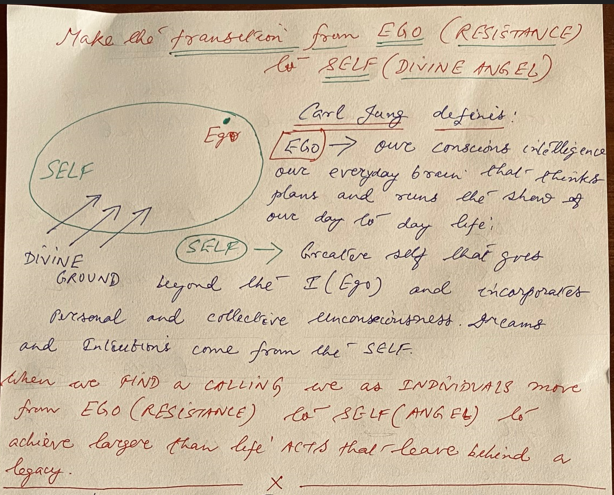 Make the transition from EGO (RESISTANCE)
to SELF (DIVINE ANGEL)
Carl Jung defines:
Ego
SELF
EGO → our conscious intelligence
our everyday brain that thinks
plans and runs the show of
our day to day life.
DIVINE
GROUND
SELF → Creative self that goes
beyond the I (Ego) and incorporates
Personal and collective Unconsciousness. Dreams
and Intentions come from the SELF.
When we FIND a CALLING we as INDIVIDUALS move
from EGO (RESISTANCE) to SELF (ANGEL) to
achieve larger than life ACTS that leave behind a
legacy.
X